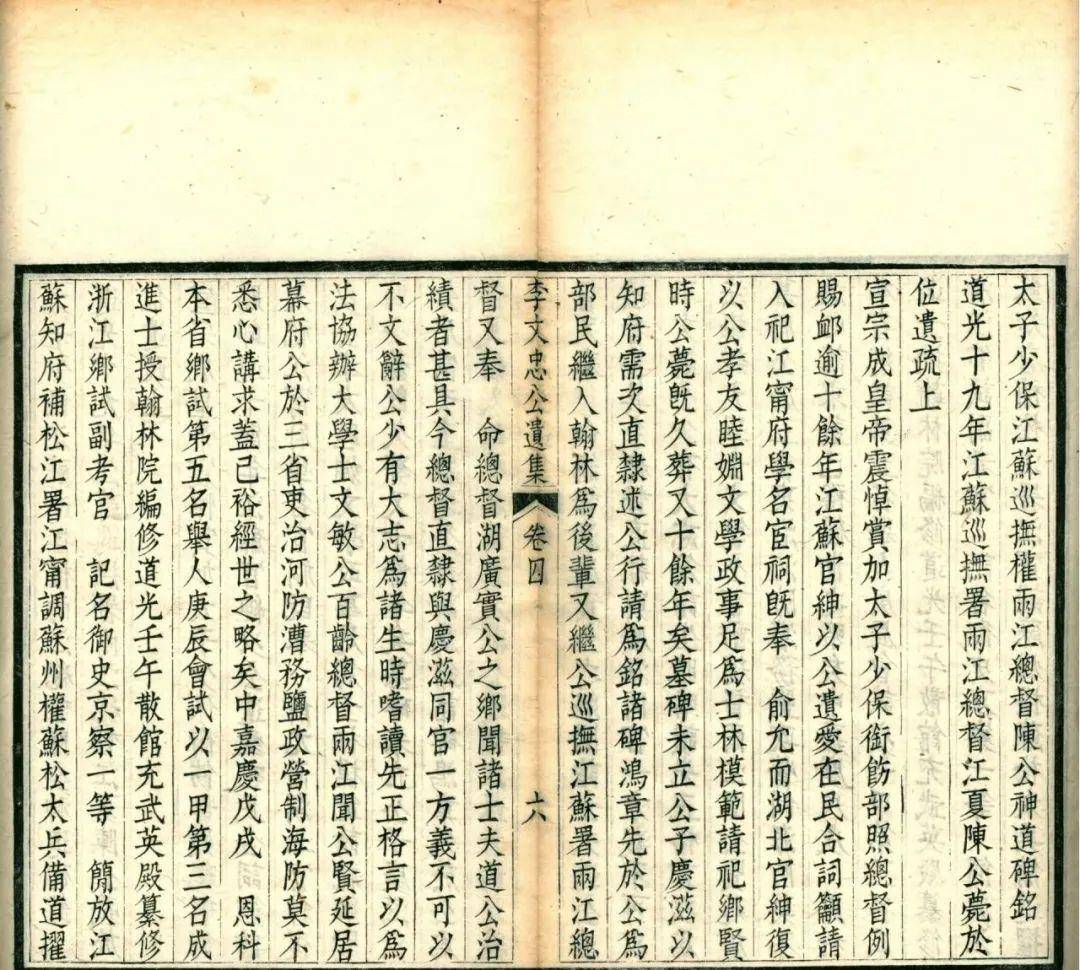 太子少保江蘇巡撫權兩江總督陳公神道碑銘
道光十九年江蘇巡撫署兩江總督江夏陳公薨於
位遺疏上
宣宗成皇帝震悼賞加太子少保銜飭部照總督例
賜卹逾十餘年江蘇官紳以公遺愛在民合詞籲請
入祀江甯府學名宦祠旣奉　俞允而湖北官紳復
以公孝友睦婣文學政事足爲士林模範請祀鄉賢
時公薨旣久葬又十餘年矣墓碑未立公子慶滋以
知府需次直隸述公行請爲銘諸碑鴻章先於公爲
部民繼入翰林爲後輩又繼公巡撫江蘇署兩江總
李文忠公遺集　卷四　六
督又奉　命總督湖廣實公之鄉聞諸士夫道公治
績者甚具今總督直隸與慶滋同官一方義不可以
不文辭公少有大志爲諸生時嗜讀先正格言以爲
法協辦大學士文敏公百齡總督兩江聞公賢延居
幕府公於三省吏治河防漕務鹽政營制海防莫不
悉心講求蓋已裕經世之略矣中嘉慶戊戌　恩科
本省鄉試第五名舉人庚辰會試以一甲第三名成
進士授翰林院編修道光壬午散館充武英殿纂修
浙江鄉試副考官　記名御史京察一等　簡放江
蘇知府補松江署江甯調蘇州權蘇松太兵備道擢